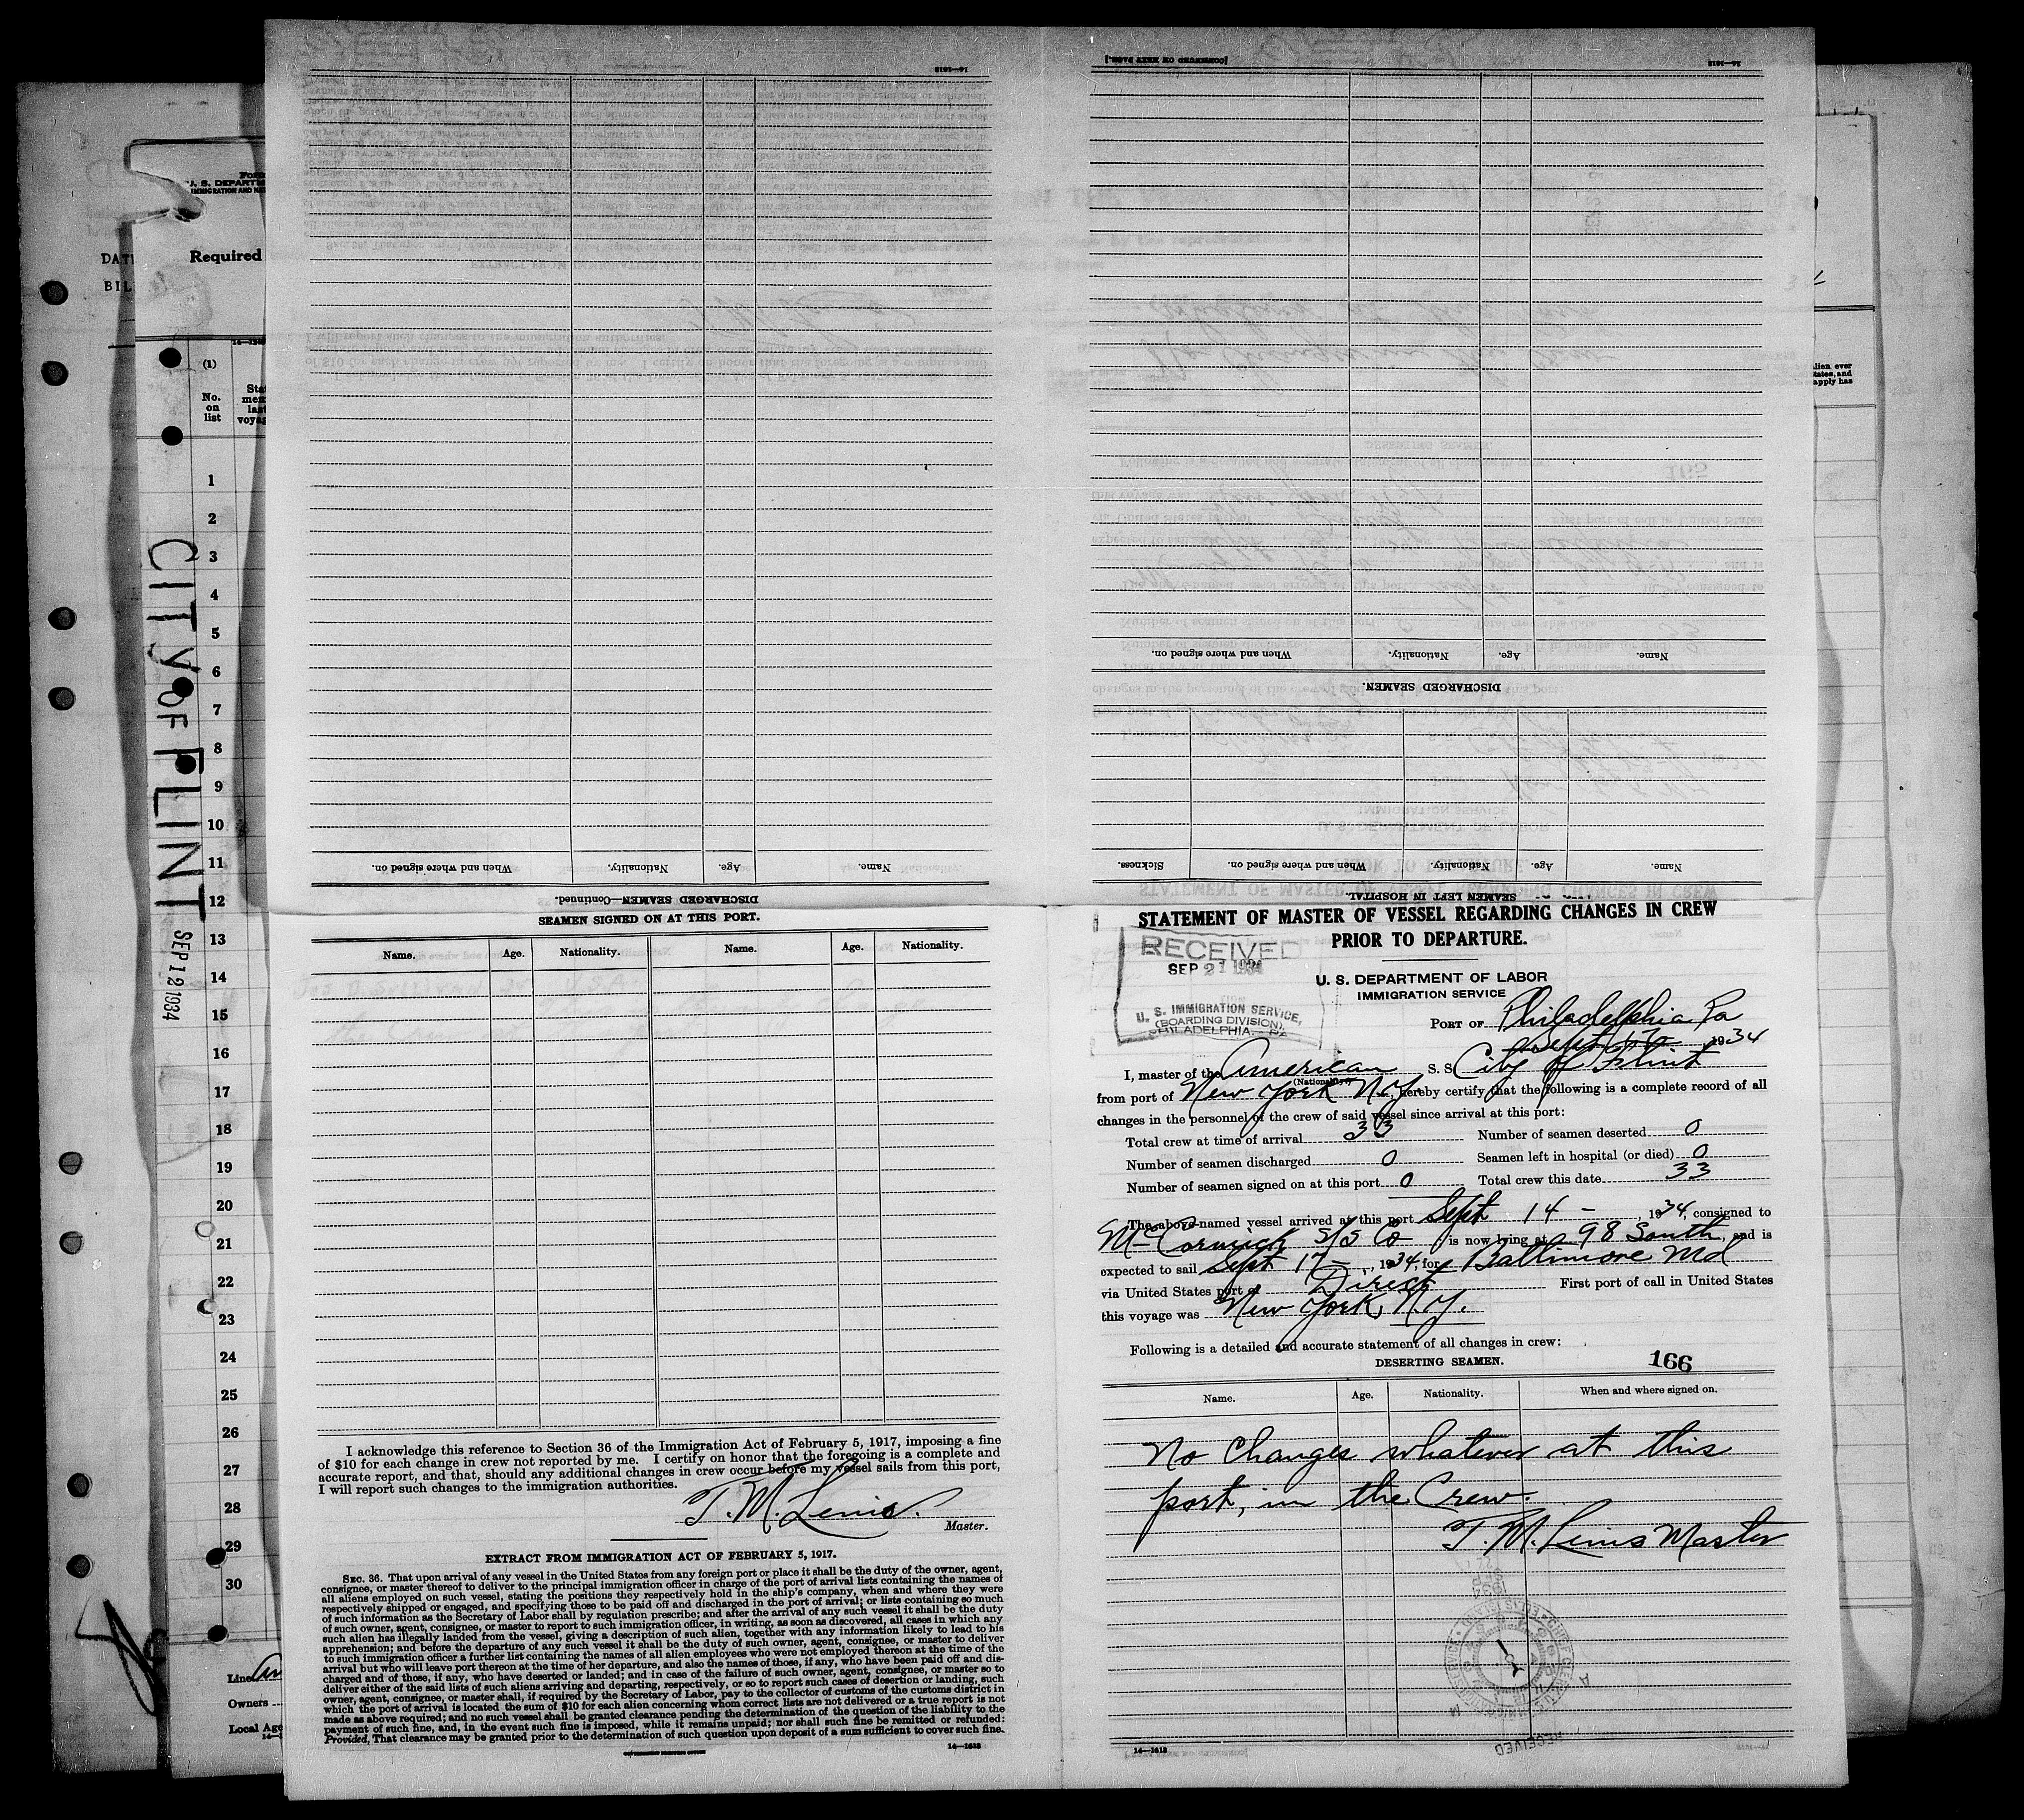 16—1613
[CONTINUED ON NEXT PAGE.]
16—1613
Name.
Age.
Nationality.
When and where signed on.
DISCHARGED SEAMEN.
Name.
Age.
Nationality.
When and where signed on.
Sickness.
SEAMEN LEFT IN HOSPITAL
Name.
Age.
Nationality.
When and where signed on.
DISCHARGED SEAMEN—Continued.
Required
(1)
No.
on
list
1
2
3
4
5
6
7
8
9
10
11
12
13
14
15
16
17
18
19
20
21
22
23
24
25
26
27
28
29
30
CITY OF FLINT
SEP 12 1934
Line
Owners
SEAMEN SIGNED ON AT THIS PORT.
Name. Age. Nationality. Name. Age. Nationality.
I acknowledge this reference to Section 36 of the Immigration Act of February 5, 1917, imposing a fine
of $10 for each change in crew not reported by me. I certify on honor that the foregoing is a complete and
accurate report, and that, should any additional changes in crew occur before my vessel sails from this port,
I will report such changes to the immigration authorities.
T. M. Lewis.
Master.
EXTRACT FROM IMMIGRATION ACT OF FEBRUARY 5, 1917.
SEC. 36. That upon arrival of any vessel in the United States from any foreign port or place it shall be the duty of the owner, agent,
consignee, or master thereof to deliver to the principal immigration officer in charge of the port of arrival lists containing the names of
all aliens employed on such vessel, stating the positions they respectively hold in the ship's company, when and where they were
respectively shipped or engaged, and specifying those to be paid off and discharged in the port of arrival; or lists containing so much
of such information as the Secretary of Labor shall by regulation prescribe; and after the arrival of any such vessel it shall be the duty
of such owner, agent, consignee, or master to report to such immigration officer, in writing, as soon as discovered, all cases in which any
such alien has illegally landed from the vessel, giving a description of such alien, together with any information likely to lead to his
apprehension; and before the departure of any such vessel it shall be the duty of such owner, agent, consignee, or master to deliver
to such immigration officer a further list containing the names of all alien employees who were not employed thereon at the time of the
arrival but who will leave port thereon at the time of her departure, and also the names of those, if any, who have been paid off and dis-
charged and of those, if any, who have deserted or landed; and in case of the failure of such owner, agent, consignee, or master so to
deliver either of the said lists of such aliens arriving and departing, respectively, or so to report such cases of desertion or landing, such
owner, agent, consignee, or master shall, if required by the Secretary of Labor, pay to the collector of customs of the customs district in
which the port of arrival is located the sum of $10 for each alien concerning whom correct lists are not delivered or a true report is not
made as above required; and no such vessel shall be granted clearance pending the determination of the question of the liability to the
payment of such fine, and, in the event such fine is imposed, while it remains unpaid; nor shall such fine be remitted or refunded:
Provided, That clearance may be granted prior to the determination of such question upon deposit of a sum sufficient to cover such fine.
14—1613
STATEMENT OF MASTER OF VESSEL REGARDING CHANGES IN CREW
PRIOR TO DEPARTURE.
RECEIVED
SEP 21 1934
U. S. IMMIGRATION SERVICE,
(BOARDING DIVISION),
PHILADELPHIA, PA
U. S. DEPARTMENT OF LABOR
IMMIGRATION SERVICE
PORT OF Philadelphia Pa
Sept 1934
I, master of the American S. S. City of Flint
(Nationality)
from port of New York N.Y., hereby certify that the following is a complete record of all
changes in the personnel of the crew of said vessel since arrival at this port:
Total crew at time of arrival 33 Number of seamen deserted 0
Number of seamen discharged 0 Seamen left in hospital (or died) 0
Number of seamen signed on at this port 0 Total crew this date 33
The above-named vessel arrived at this port Sept 14 —, 1934, consigned to
McCormick S/S Co is now lying at 98 South, and is
expected to sail Sept 17 —, 1934, for Baltimore Md
via United States port of Direct First port of call in United States
this voyage was New York, N.Y.
Following is a detailed and accurate statement of all changes in crew:
DESERTING SEAMEN.
166
Name. Age. Nationality. When and where signed on.
No Changes whatever at this
port, in the Crew.
T. M. Lewis Master
14—1613